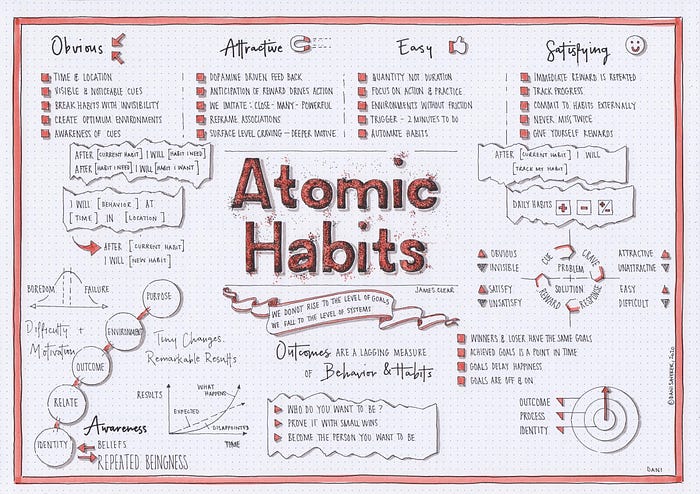 Obvious
TIME & LOCATION
VISIBLE & NOTICABLE CUES
BREAK HABITS WITH INVISIBILITY
CREATE OPTIMUM ENVIRONMENTS
AWARENESS OF CUES
Attractive
DOPAMINE DRIVEN FEED BACK
ANTICIPATION OF REWARD DRIVES ACTION
WE IMITATE : CLOSE - MANY - POWERFUL
REFRAME ASSOCIATIONS
SURFACE LEVEL CRAVING – DEEPER MOTIVE
Easy
QUANTITY NOT DURATION
FOCUS ON ACTION & PRACTICE
ENVIRONMENTS WITHOUT FRICTION
TRIGGER - 2 MINUTES TO DO
AUTOMATE HABITS
Satisfying
IMMEDIATE REWARD IS REPEATED
TRACK PROGRESS
COMMIT TO HABITS EXTERNALLY
NEVER MISS TWICE
GIVE YOURSELF REWARDS
AFTER [CURRENT HABIT] I WILL [HABIT I NEED]
AFTER [HABIT I NEED] I WILL [HABIT I WANT]
I WILL [BEHAVIOR] AT
[TIME] IN [LOCATION]
AFTER [CURRENT HABIT]
I WILL [NEW HABIT]
Atomic
Habits
JAMES CLEAR
AFTER [CURRENT HABIT] I WILL
[TRACK MY HABIT]
DAILY HABITS + - +/-
OBVIOUS
INVISIBLE
SATISFY
UNSATISFY
CUE
CRAVE
PROBLEM
SOLUTION
REWARD
RESPONSE
ATTRACTIVE
UNATTRACTIVE
EASY
DIFFICULT
WE DO NOT RISE TO THE LEVEL OF GOALS
WE FALL TO THE LEVEL OF SYSTEMS
BOREDOM
FAILURE
Difficulty +
Motivation
PURPOSE
ENVIRONMENT
OUTCOME
RELATE
IDENTITY
Tiny Changes.
Remarkable Results
Outcomes ARE A LAGGING MEASURE
OF Behavior & Habits
WINNERS & LOSER HAVE THE SAME GOALS
ACHIEVED GOALS IS A POINT IN TIME
GOALS DELAY HAPPINESS
GOALS ARE OFF & ON
RESULTS
WHAT
HAPPENS
EXPECTED
DISAPPOINTED
TIME
WHO DO YOU WANT TO BE?
PROVE IT WITH SMALL WINS
BECOME THE PERSON YOU WANT TO BE
Awareness
BELIEFS
REPEATED BEINGNESS
OUTCOME
PROCESS
IDENTITY
DANI